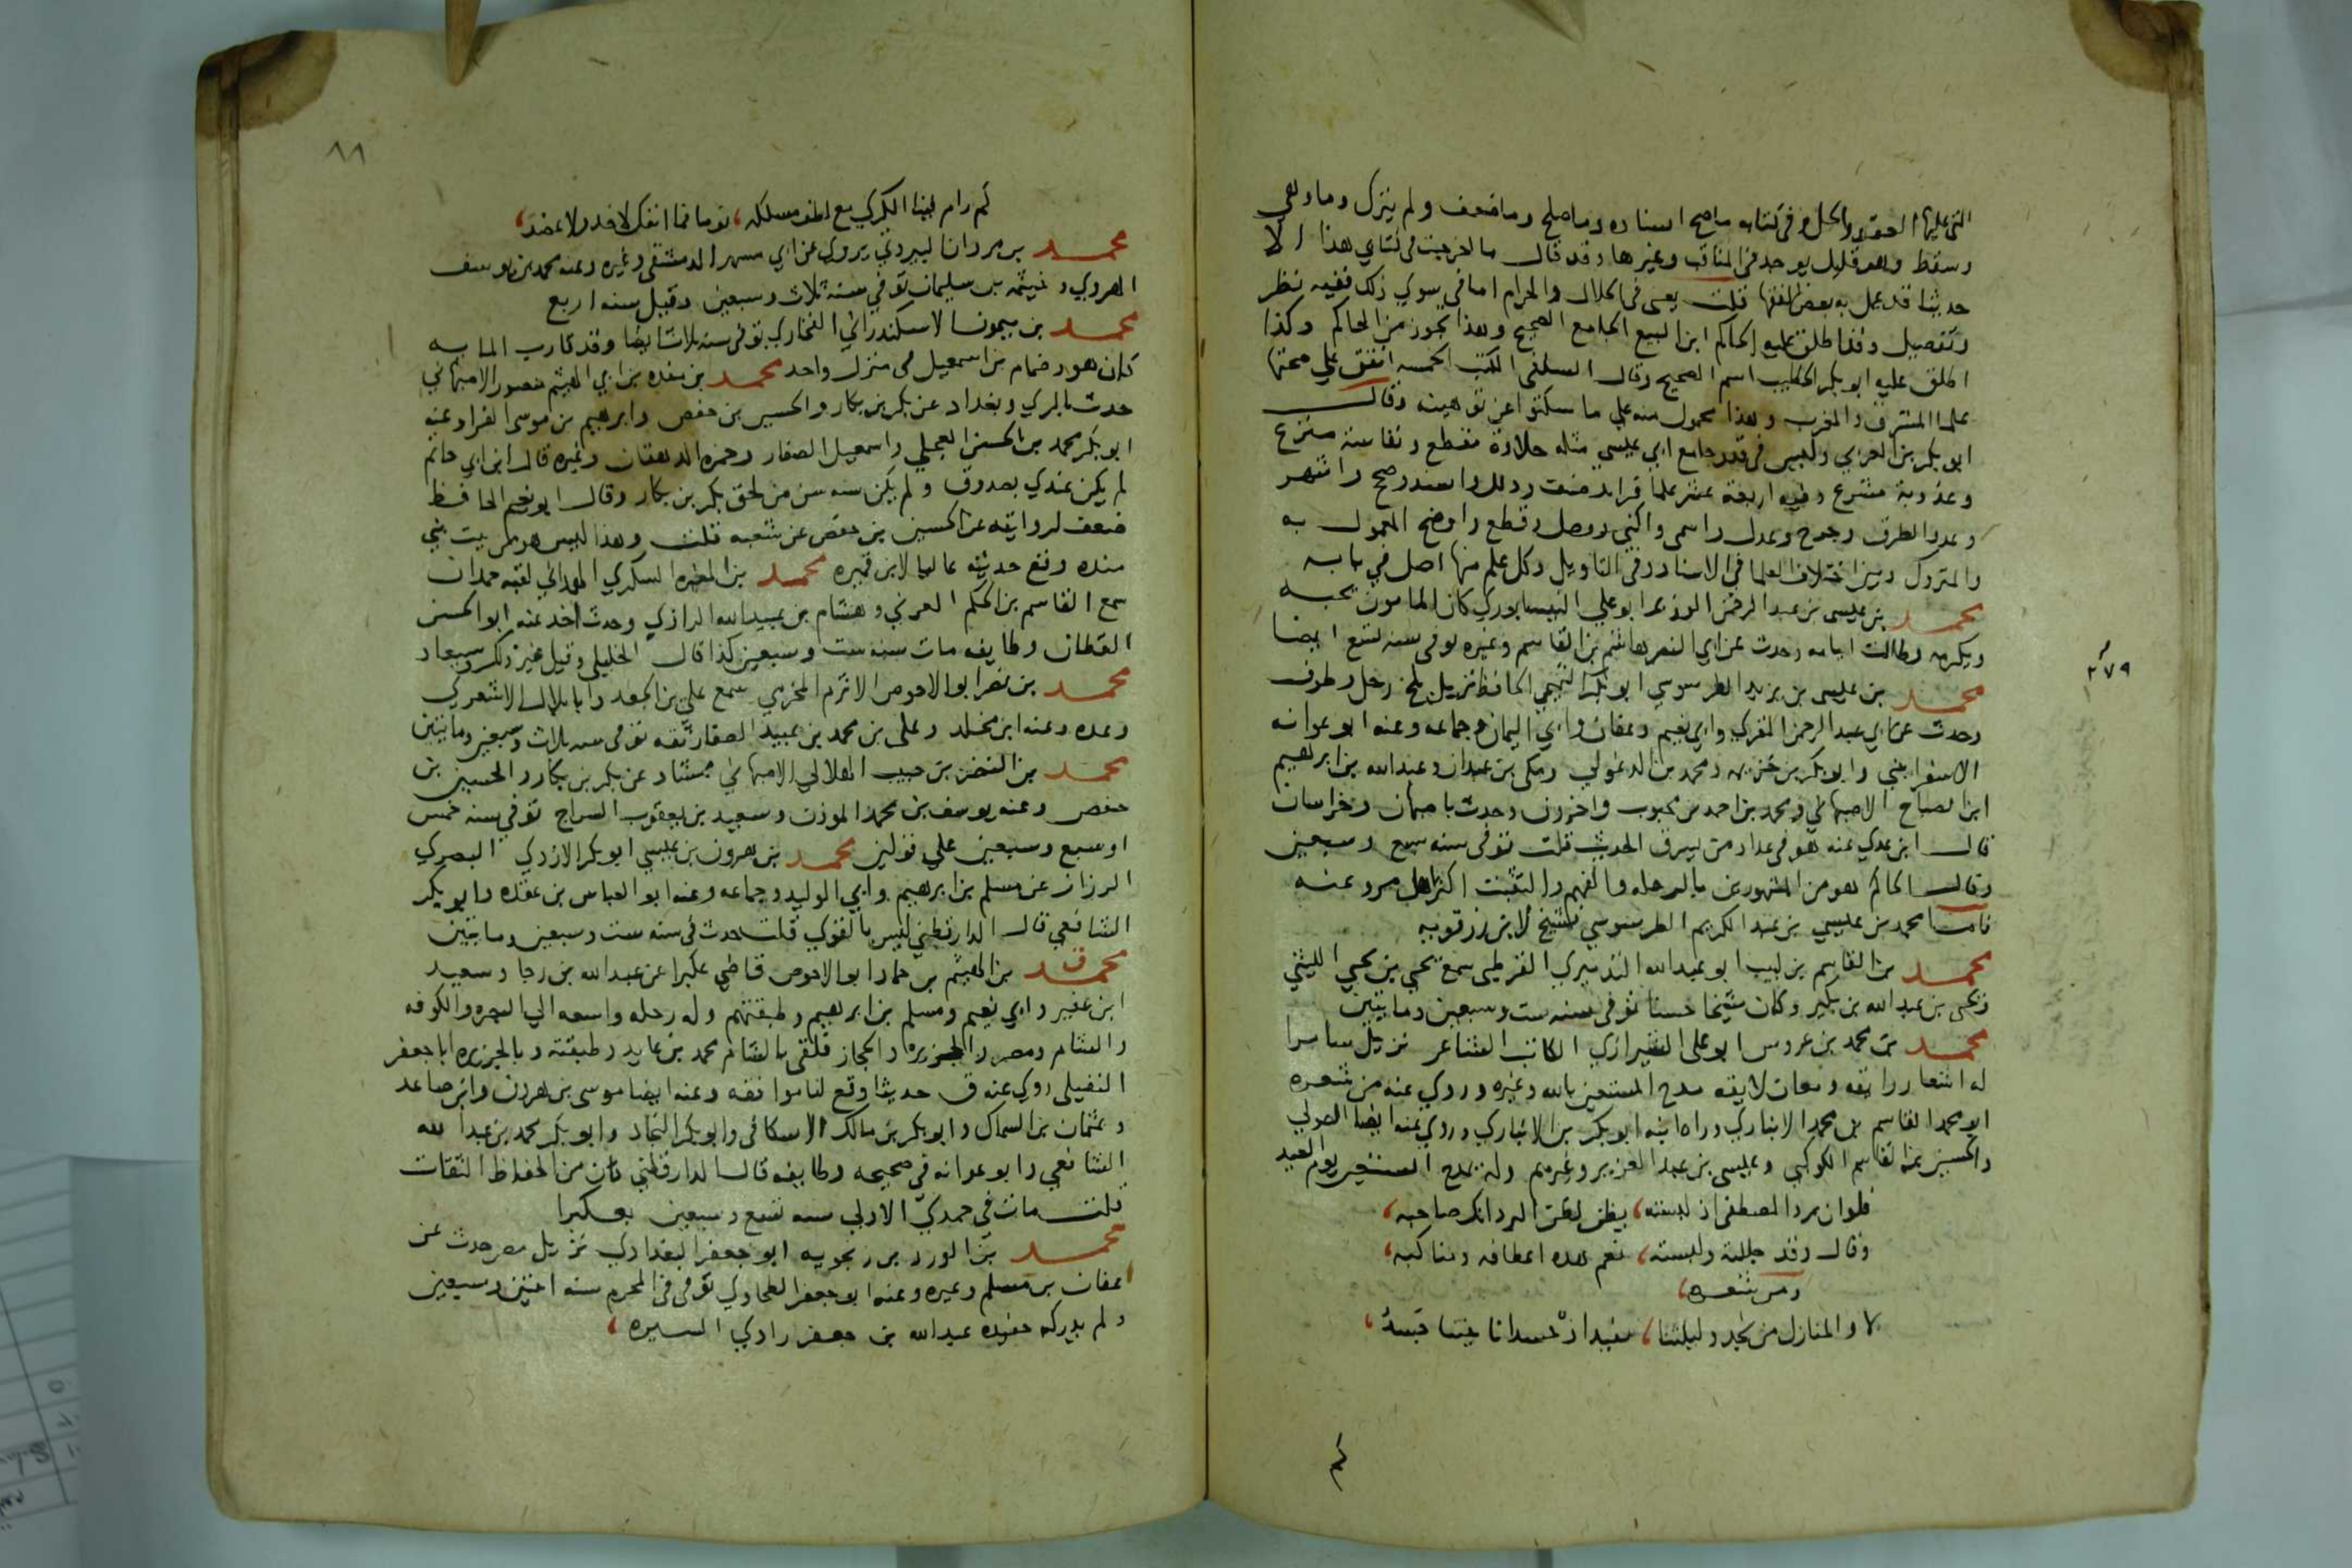 التي عليها العقد والحل وفي كتابه ما صح اسناده وما صلح وما ضعف ولم يترك وما وهي
وسقط وهو قليل يوجد في المناقب وغيرها وقد قال ما اخرجت في كتابي هذا الا
حديثا قد عمل به بعض الفقها قلت يعني في الحلال والحرام اما في سوي ذلك ففيه نظر
وتفصيل وقد اطلق عليه الحاكم ابن البيع الجامع الصحيح وهذا تجوز من الحاكم وكذا
اطلق عليه ابو بكر الخطيب اسم الصحيح وقال السلفي الكتب الخمسه اتفق علي صحتها
علما المشرق والمغرب وهذا محمول منه علي ما سكتوا عن توهينه وقال
ابو بكر بن العربي وليس في قدر جامع ابي عيسي مثله حلاوة مقطع ونفاسة منزع
وعذوبة مشرع وفيه اربعة عشر علما فوايد صنف ودلل واسند وصحح واشهر
وعدد الطرق وجرح وعدل واسمي واكني ووصل وقطع واوضح المعمول به
والمتروك وبين اختلاف العلما في الاسناد وفي التاويل وكل علم منها اصل في بابه
محمد بن عيسى بن عبد الرحمن الوزير ابو علي النيسابوري كان المامون يحبه
ويكرمه وطالت ايامه وحدث عن ابي النضر هاشم بن القاسم وغيره توفي سنه تسع ايضا
٢٧٩
محمد بن عيسى بن يزيد الطرسوسي ابو بكر التميمي الحافظ نزيل بلخ رحل وطوف
وحدث عن ابي عبد الرحمن المقري وابي نعيم وعفان وابي اليمان وجماعه وعنه ابو عوانه
الاسفرايني وابو بكر بن خزيمه ومحمد بن الدغولي ومكي بن عبدان وعبد الله بن ابراهيم
ابن الصباح الاصبهاني ومحمد بن احمد بن محبوب واخرون وحدث باصبهان وخراسان
قال ابن عدي عنه هو في عداد من يسرق الحديث قلت توفي سنه سبع وسبعين
وقال الحاكم هو من المشهورين بالرحله والفهم والتثبت اكثر اهل مرو عنه
فاما محمد بن عيسي بن عبد الكريم الطرسوسي فشيخ لابن زرقويه
محمد بن القاسم بن لبيب ابو عبد الله التدميري القرطبي سمع يحيي بن يحيي الليثي
ويحيى بن عبد الله بن بكير وكان شيخا حسنا توفي سنه ست وسبعين ومايتين
محمد بن محمد بن عروس ابو علي الشيرازي الكاتب الشاعر نزيل سامرا
له اشعار رايقه ومعان لايقه مدح المستعين بالله وغيره وروي عنه من شعره
ابو محمد القاسم بن محمد الانباري وراه ابنه ابو بكر بن الانباري وروي عنه ايضا الصولي
والحسين بن القاسم الكوكبي وعيسى بن عبد العزيز وغيرهم وله يمدح المستعين يوم العيد
فلو ان برد المصطفي اذ لبسته، يظن لظن البرد انك صاحبه،
وقال وقد جللته ولبسته، نعم هذه اعطافه ومناكبه،
ومن شعره،
لا والمنازل من نجد وليلتنا،
٨٨
كم رام فينا الكري مع لطف مسلكه، نوما فما انفك لا خد ولا عضد،
محمد بن مروان البيروتي يروي عن ابي مسهر الدمشقي وغيره وعنه محمد بن يوسف
الهروي وخيثمه بن سليمان توفي سنه ثلاث وسبعين وقيل سنه اربع
محمد بن ميمون الاسكندراني الفخاري توفي سنه ثلاث ايضا وقد قارب المايه
كان هو وضمام بن اسمعيل في منزل واحد محمد بن منده بن ابي الهيثم منصور الاصبهاني
حدث بالري وبغداد عن بكر بن بكار والحسين بن حفص وابرهيم بن موسي الفرا وعنه
ابو بكر محمد بن الحسن العجلي واسمعيل الصفار وحمزه الدهقان وغيره قال ابن ابي حاتم
لم يكن عندي بصدوق ولم يكن سنه سن من لحق بكر بن بكار وقال ابو نعيم الحافظ
ضعف لروايته عن الحسين بن حفص عن شعبه قلت وهذا ليس هو من بيت بني
منده وقع حديثه عاليا لابن قميره محمد بن المغيره السكري الهمداني لقبه حمدان
سمع القاسم بن الحكم العرني وهشام بن عبيد الله الرازي وحدث اخذ عنه ابو الحسن
القطان وطايفه مات سنه ست وسبعين كذا قال الخليلي وقيل غير ذلك وسيعاد
محمد بن نصر ابو الاحوص الاثرم المخرمي سمع علي بن الجعد وابا بلال الاشعري
وعده وعنه ابن مخلد وعلي بن محمد بن عبيد الصفار ثقه توفي سنه ثلاث وسبعين ومايتين
محمد بن النضر بن حبيب الهلالي الاصبهاني عن بكر بن بكار والحسين بن
حفص وعنه يوسف بن محمد الموذن وسعيد بن يعقوب السراج توفي سنه خمس
او سبع وسبعين علي قولين محمد بن هرون بن عيسي ابو بكر الازدي البصري
الرزاز عن مسلم بن ابرهيم وابي الوليد وجماعه وعنه ابو العباس بن عقده وابو بكر
الشافعي قال الدارقطني ليس بالقوي قلت حدث في سنه ست وسبعين ومايتين
محمد ق بن الهيثم بن حماد ابو الاحوص قاضي عكبرا عن عبد الله بن رجا وسعيد
ابن عفير وابي نعيم ومسلم بن ابرهيم وطبقتهم وله رحله واسعه الي البصره والكوفه
والشام ومصر والجزيره والحجاز فلقي بالشام محمد بن عايد وطبقته وبالجزيره ابا جعفر
النفيلي روي عنه ق حديثا وقع لنا موافقه وعنه ايضا موسى بن هرون وابن صاعد
وعثمان بن السماك وابو بكر بن مالك الاسكافي وابو بكر النجاد وابو بكر محمد بن عبد الله
الشافعي وابو عوانه في صحيحه وطايفه قال الدارقطني كان من الحفاظ الثقات
قلت مات في جمدي الاولي سنه تسع وسبعين بعكبرا
محمد بن الورد بن زنجويه ابو جعفر البغدادي نزيل مصر حدث عن
عفان بن مسلم وغيره وعنه ابو جعفر الطحاوي توفي في المحرم سنه اثنتين وسبعين
ولم يدركه حفيده عبد الله بن جعفر راوي السيره،